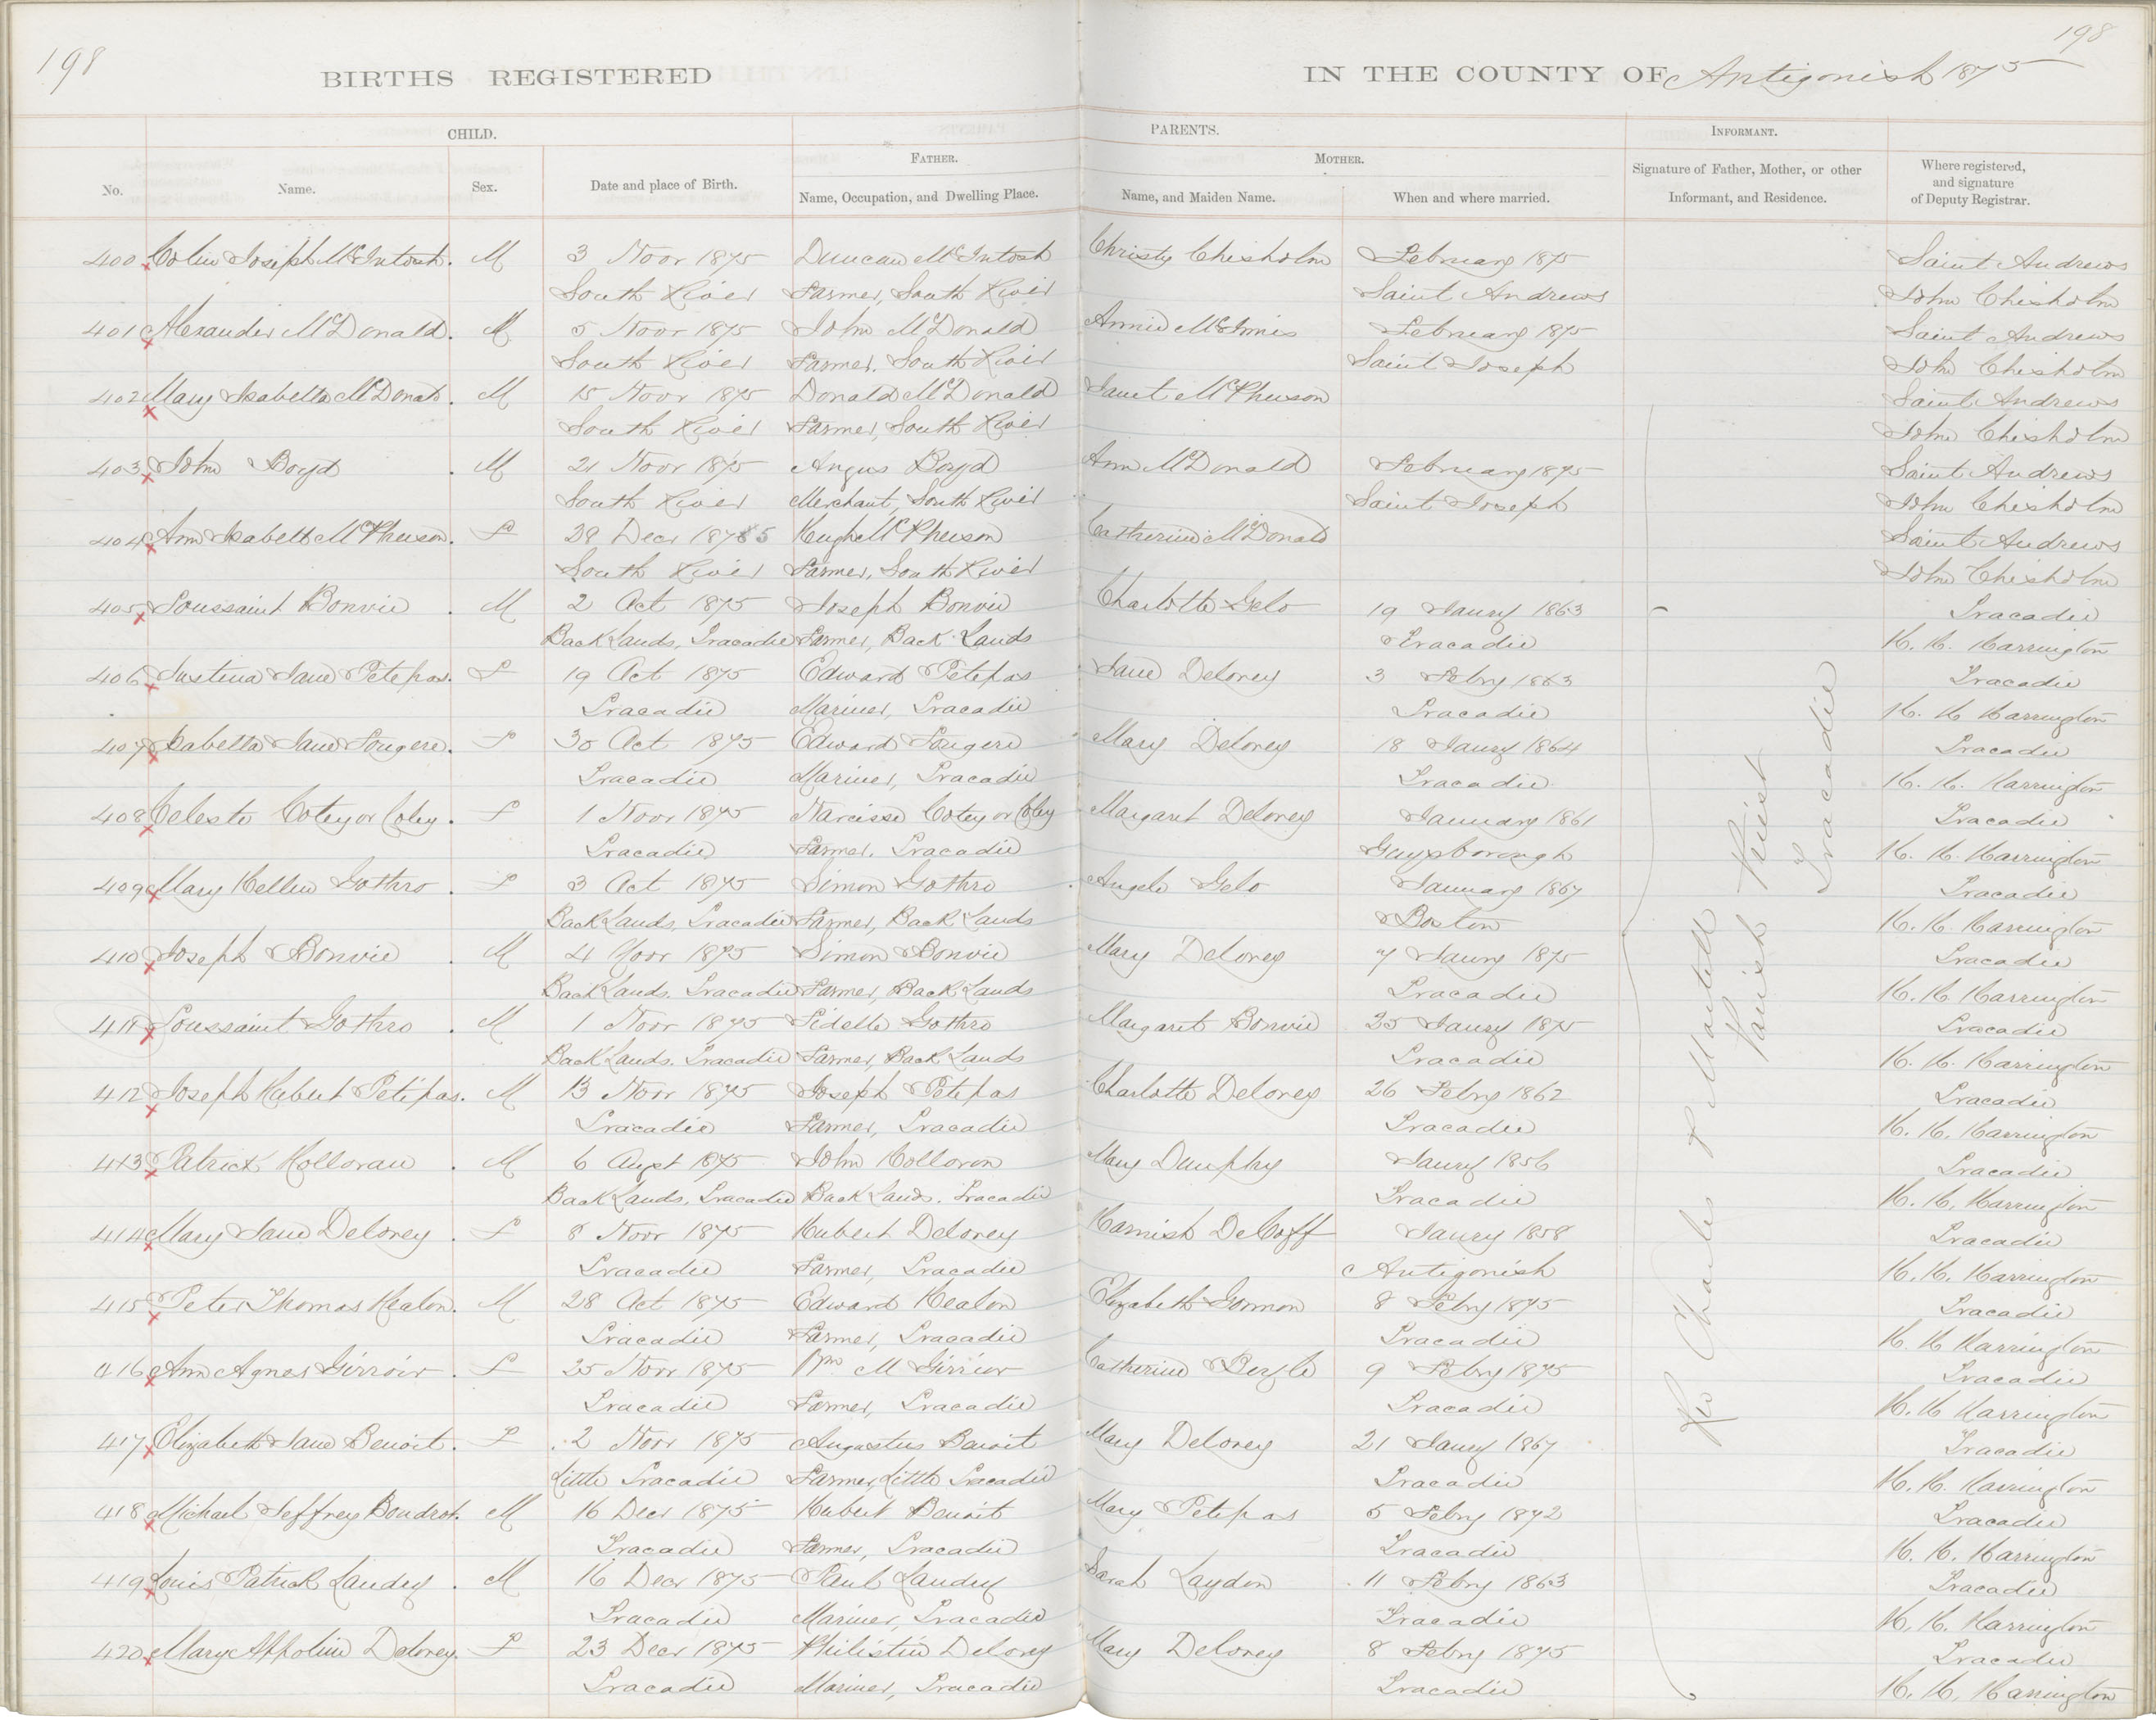 198
198
BIRTHS REGISTERED IN THE COUNTY OF Antigonish 1875
CHILD. PARENTS. INFORMANT.
FATHER. MOTHER.
No. Name. Sex. Date and place of Birth. Name, Occupation, and Dwelling Place. Name, and Maiden Name. When and where married. Signature of Father, Mother, or other Informant, and Residence. Where registered, and signature of Deputy Registrar.
400 Colin Joseph McIntosh. M 3 Novr 1875 Duncan McIntosh Christy Chisholm February 1875 Saint Andrews
South River Farmer, South River Saint Andrews John Chisholm
401 Alexander McDonald. M 5 Novr 1875 John McDonald Annie McInnis February 1875 Saint Andrews
South River Farmer, South River Saint Joseph John Chisholm
402 Mary Isabella McDonald. M 15 Novr 1875 Donald McDonald Janet McPherson Saint Andrews
South River Farmer, South River John Chisholm
403 John Boyd . M 21 Novr 1875 Angus Boyd Ann McDonald February 1875 Saint Andrews
South River Merchant, South River Saint Joseph John Chisholm
404 Ann Isabella McPherson. F 29 Decr 1875 Hugh McPherson Catherine McDonald Saint Andrews
South River Farmer, South River John Chisholm
405 Toussaint Bonvie . M 2 Oct 1875 Joseph Bonvie Charlotte Gelo 19 Jany 1863 Tracadie
Back Lands, Tracadie Farmer, Back Lands Tracadie H. H. Harrington
406 Justina Jane Petepas. F 19 Oct 1875 Edward Petepas Jane Delorey 3 Feby 1863 Tracadie
Tracadie Mariner, Tracadie Tracadie H. H Harrington
407 Isabella Jane Fougere. F 30 Oct 1875 Edward Fougere Mary Delorey 18 Jany 1864 Tracadie
Tracadie Mariner, Tracadie Tracadie H. H. Harrington
408 Celeste Cotey or Coley . F 1 Novr 1875 Narcisse Cotey or Coley Margaret Delorey January 1861 Tracadie
Tracadie Farmer, Tracadie Guysborough H. H. Harrington
409 Mary Hellen Gothro . F 3 Oct 1875 Simon Gothro Angele Gelo January 1867 Tracadie
Back Lands, Tracadie Farmer, Back Lands Boston H. H. Harrington
410 Joseph Bonvie . M 4 Novr 1875 Simon Bonvie Mary Delorey 7 Jany 1875 Tracadie
Back Lands, Tracadie Farmer, Back Lands Tracadie H. H. Harrington
411 Toussaint Gothro . M 1 Novr 1875 Fidelle Gothro Margaret Bonvie 25 Jany 1875 Tracadie
Back Lands, Tracadie Farmer, Back Lands Tracadie H. H. Harrington
412 Joseph Hubert Petipas. M 13 Novr 1875 Joseph Petepas Charlotte Delorey 26 Feby 1862 Tracadie
Tracadie Farmer, Tracadie Tracadie H. H. Harrington
413 Patrick Holloran . M 6 Augst 1875 John Holloron Mary Dunphy Jany 1856 Tracadie
Back Lands, Tracadie Back Lands, Tracadie Tracadie H. H. Harrington
414 Mary Jane Delorey . F 8 Novr 1875 Hubert Delorey Harnish DeCoff Jany 1858 Tracadie
Tracadie Farmer, Tracadie Antigonish H. H. Harrington
415 Peter Thomas Heaton. M 28 Oct 1875 Edward Heaton Elizabeth Gormon 8 Feby 1875 Tracadie
Tracadie Farmer, Tracadie Tracadie H. H Harrington
416 Ann Agnes Girroir . F 25 Novr 1875 Wm M Girrior Catherine Boyle 9 Feby 1875 Tracadie
Tracadie Farmer, Tracadie Tracadie H. H Harrington
417 Elizabeth Jane Benoit. F 2 Novr 1875 Augustus Benoit Mary Delorey 21 Jany 1867 Tracadie
Little Tracadie Farmer, Little Tracadie Tracadie H. H. Harrington
418 Michael Jeffrey Boudrot. M 16 Decr 1875 Hubert Benoit Mary Petepas 5 Feby 1872 Tracadie
Tracadie Farmer, Tracadie Tracadie H. H. Harrington
419 Louis Patrick Landry . M 16 Decr 1875 Paul Landry Sarah Layden 11 Feby 1863 Tracadie
Tracadie Mariner, Tracadie Tracadie H. H. Harrington
420 Mary Appoline Delorey. F 23 Decr 1875 Philistin Delorey Mary Delorey 8 Feby 1875 Tracadie
Tracadie Mariner, Tracadie Tracadie H. H. Harrington
Charles Martell
Parish Priest
Tracadie